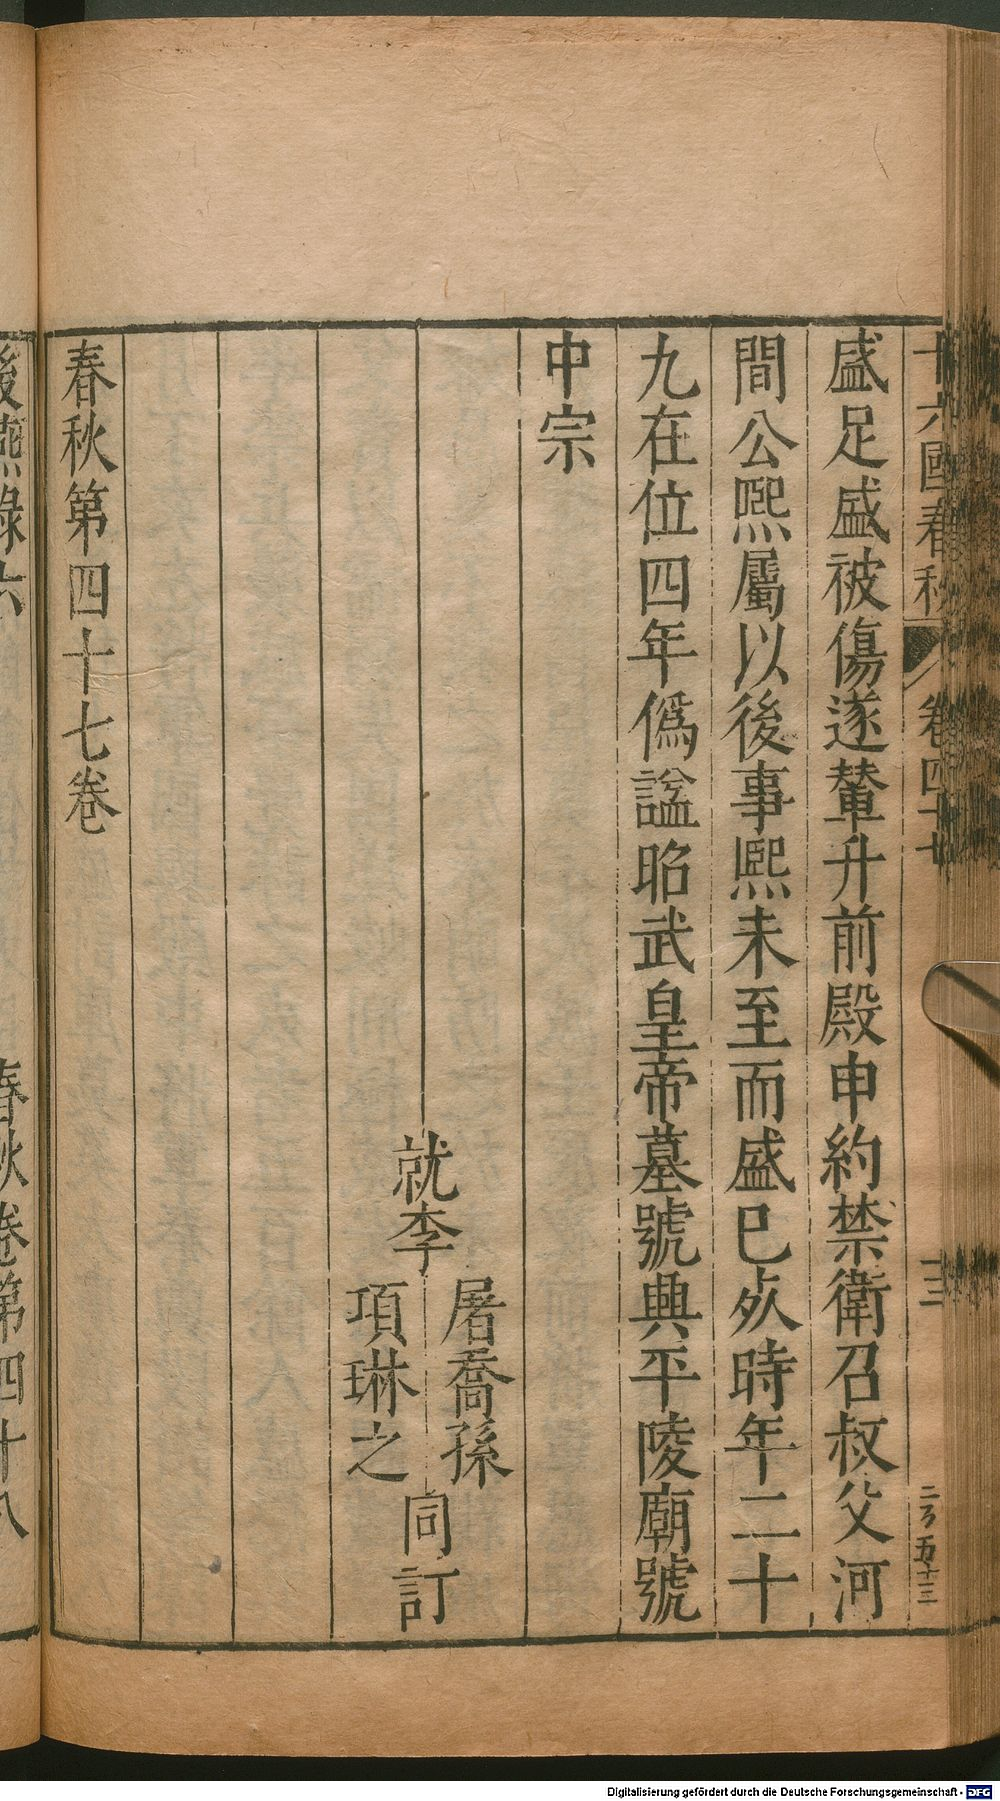 十六國春秋 卷四十七 十三 二多五十三
盛足盛被傷遂輦升前殿申約禁衛召叔父河
間公熙屬以後事熙未至而盛已歿時年二十
九在位四年僞謚昭武皇帝墓號興平陵廟號
中宗
就李
屠喬孫
項琳之
同訂
春秋第四十七卷
後燕錄六 春秋卷第四十八
Digitalisierung gefördert durch die Deutsche Forschungsgemeinschaft - DFG